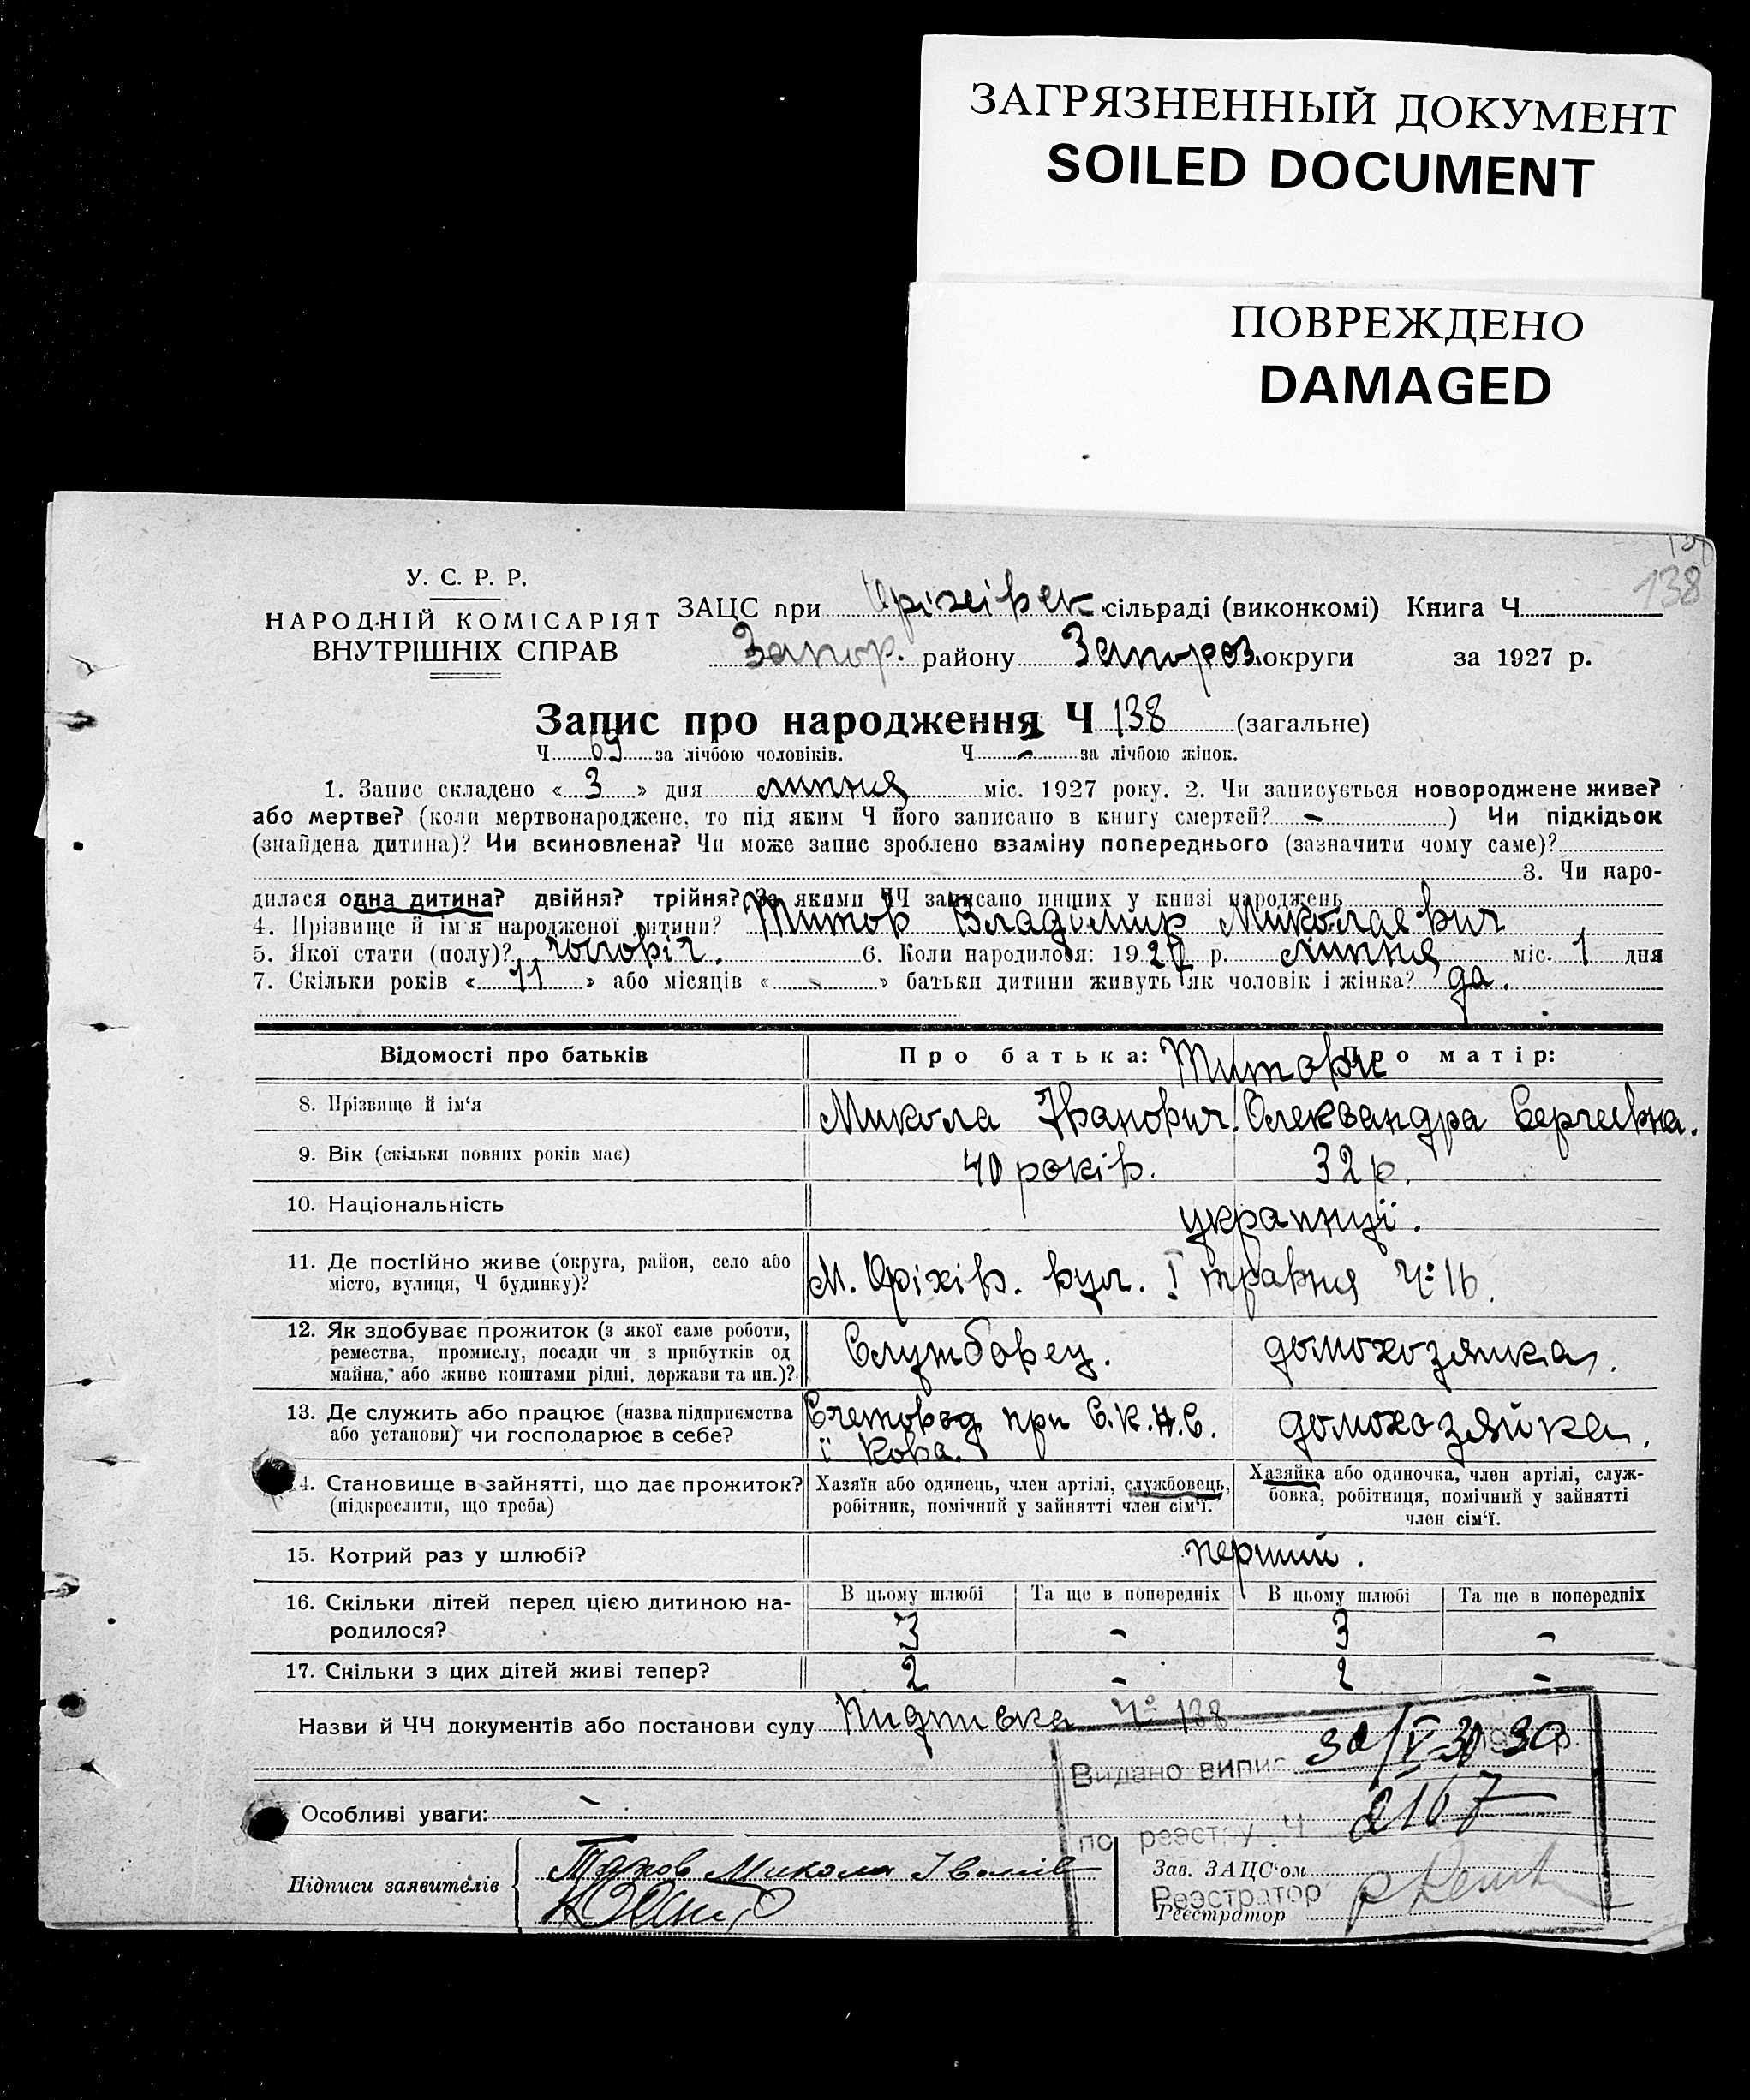 ЗАГРЯЗНЕННЫЙ ДОКУМЕНТ
SOILED DOCUMENT
ПОВРЕЖДЕНО
DAMAGED
138
У. С. Р. Р.
НАРОДНІЙ КОМІСАРІЯТ
ВНУТРІШНІХ СПРАВ
ЗАЦС при Оріхівск сільраді (виконкомі) Книга Ч
Запор. району Запороз. округи за 1927 р.
Запис про народження Ч 138 (загальне)
Ч 69 за лічбою чоловіків. Ч - за лічбою жінок.
1. Запис складено « 3 » дня липня міс. 1927 року. 2. Чи записується новороджене живе?
або мертве? (коли мертвонароджене, то під яким Ч його записано в книгу смертей? - ) Чи підкідьок
(знайдена дитина)? Чи всиновлена? Чи може запис зроблено взаміну попереднього (зазначити чому саме)?
3. Чи наро-
дилася одна дитина? двійня? трійня? За якими ЧЧ записано инщих у книзі народжень
4. Прізвище й ім'я народженої дитини? Титов Владимир Миколаевич
5. Якої стати (полу)? чоловіч. 6. Коли народилося: 1927 р. липня міс. 1 дня
7. Скільки років « 11 » або місяців « - » батьки дитини живуть як чоловік і жінка? да.
Відомості про батьків Про батька: Про матір:
Титови
8. Прізвище й ім'я Микола Іванович. Олександра Сергеевна.
9. Вік (скільки повних років має) 40 років. 32 р.
10. Національність українці.
11. Де постійно живе (округа, район, село або
місто, вулиця, Ч будинку)? М. Оріхів. вул. І травня Ч: 16.
12. Як здобуває прожиток (з якої саме роботи,
ремества, промислу, посади чи з прибутків од
майна, або живе коштами рідні, держави та ин.)? Службовец. домохозяйка.
13. Де служить або працює (назва підприємства
або установи) чи господарює в себе? Счетовод при С.К.Н.С. домохозяйка.
14. Становище в зайнятті, що дає прожиток?
(підкреслити, що треба)
Хазяїн або одинець, член артілі, службовець,
робітник, помічний у зайнятті член сім'ї.
Хазяйка або одиночка, член артілі, служ-
бовка, робітниця, помічний у зайнятті
член сім'ї.
15. Котрий раз у шлюбі? перший.
16. Скільки дітей перед цією дитиною на-
родилося?
В цьому шлюбі Та ще в попередніх В цьому шлюбі Та ще в попередніх
3 - 3 -
17. Скільки з цих дітей живі тепер? 2 - 2 -
Назви й ЧЧ документів або постанови суду Пидписка Ч: 138
Видано випис 30/V-30 р.
по реэстру Ч 2167
Особливі уваги: -
Підписи заявителів Микола Іванів
Зав. ЗАЦС'ом
Реэстратор
Реєстратор